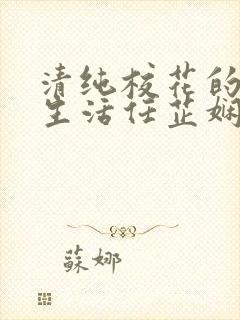 清纯校花的
生活任芷娴
蘇娜